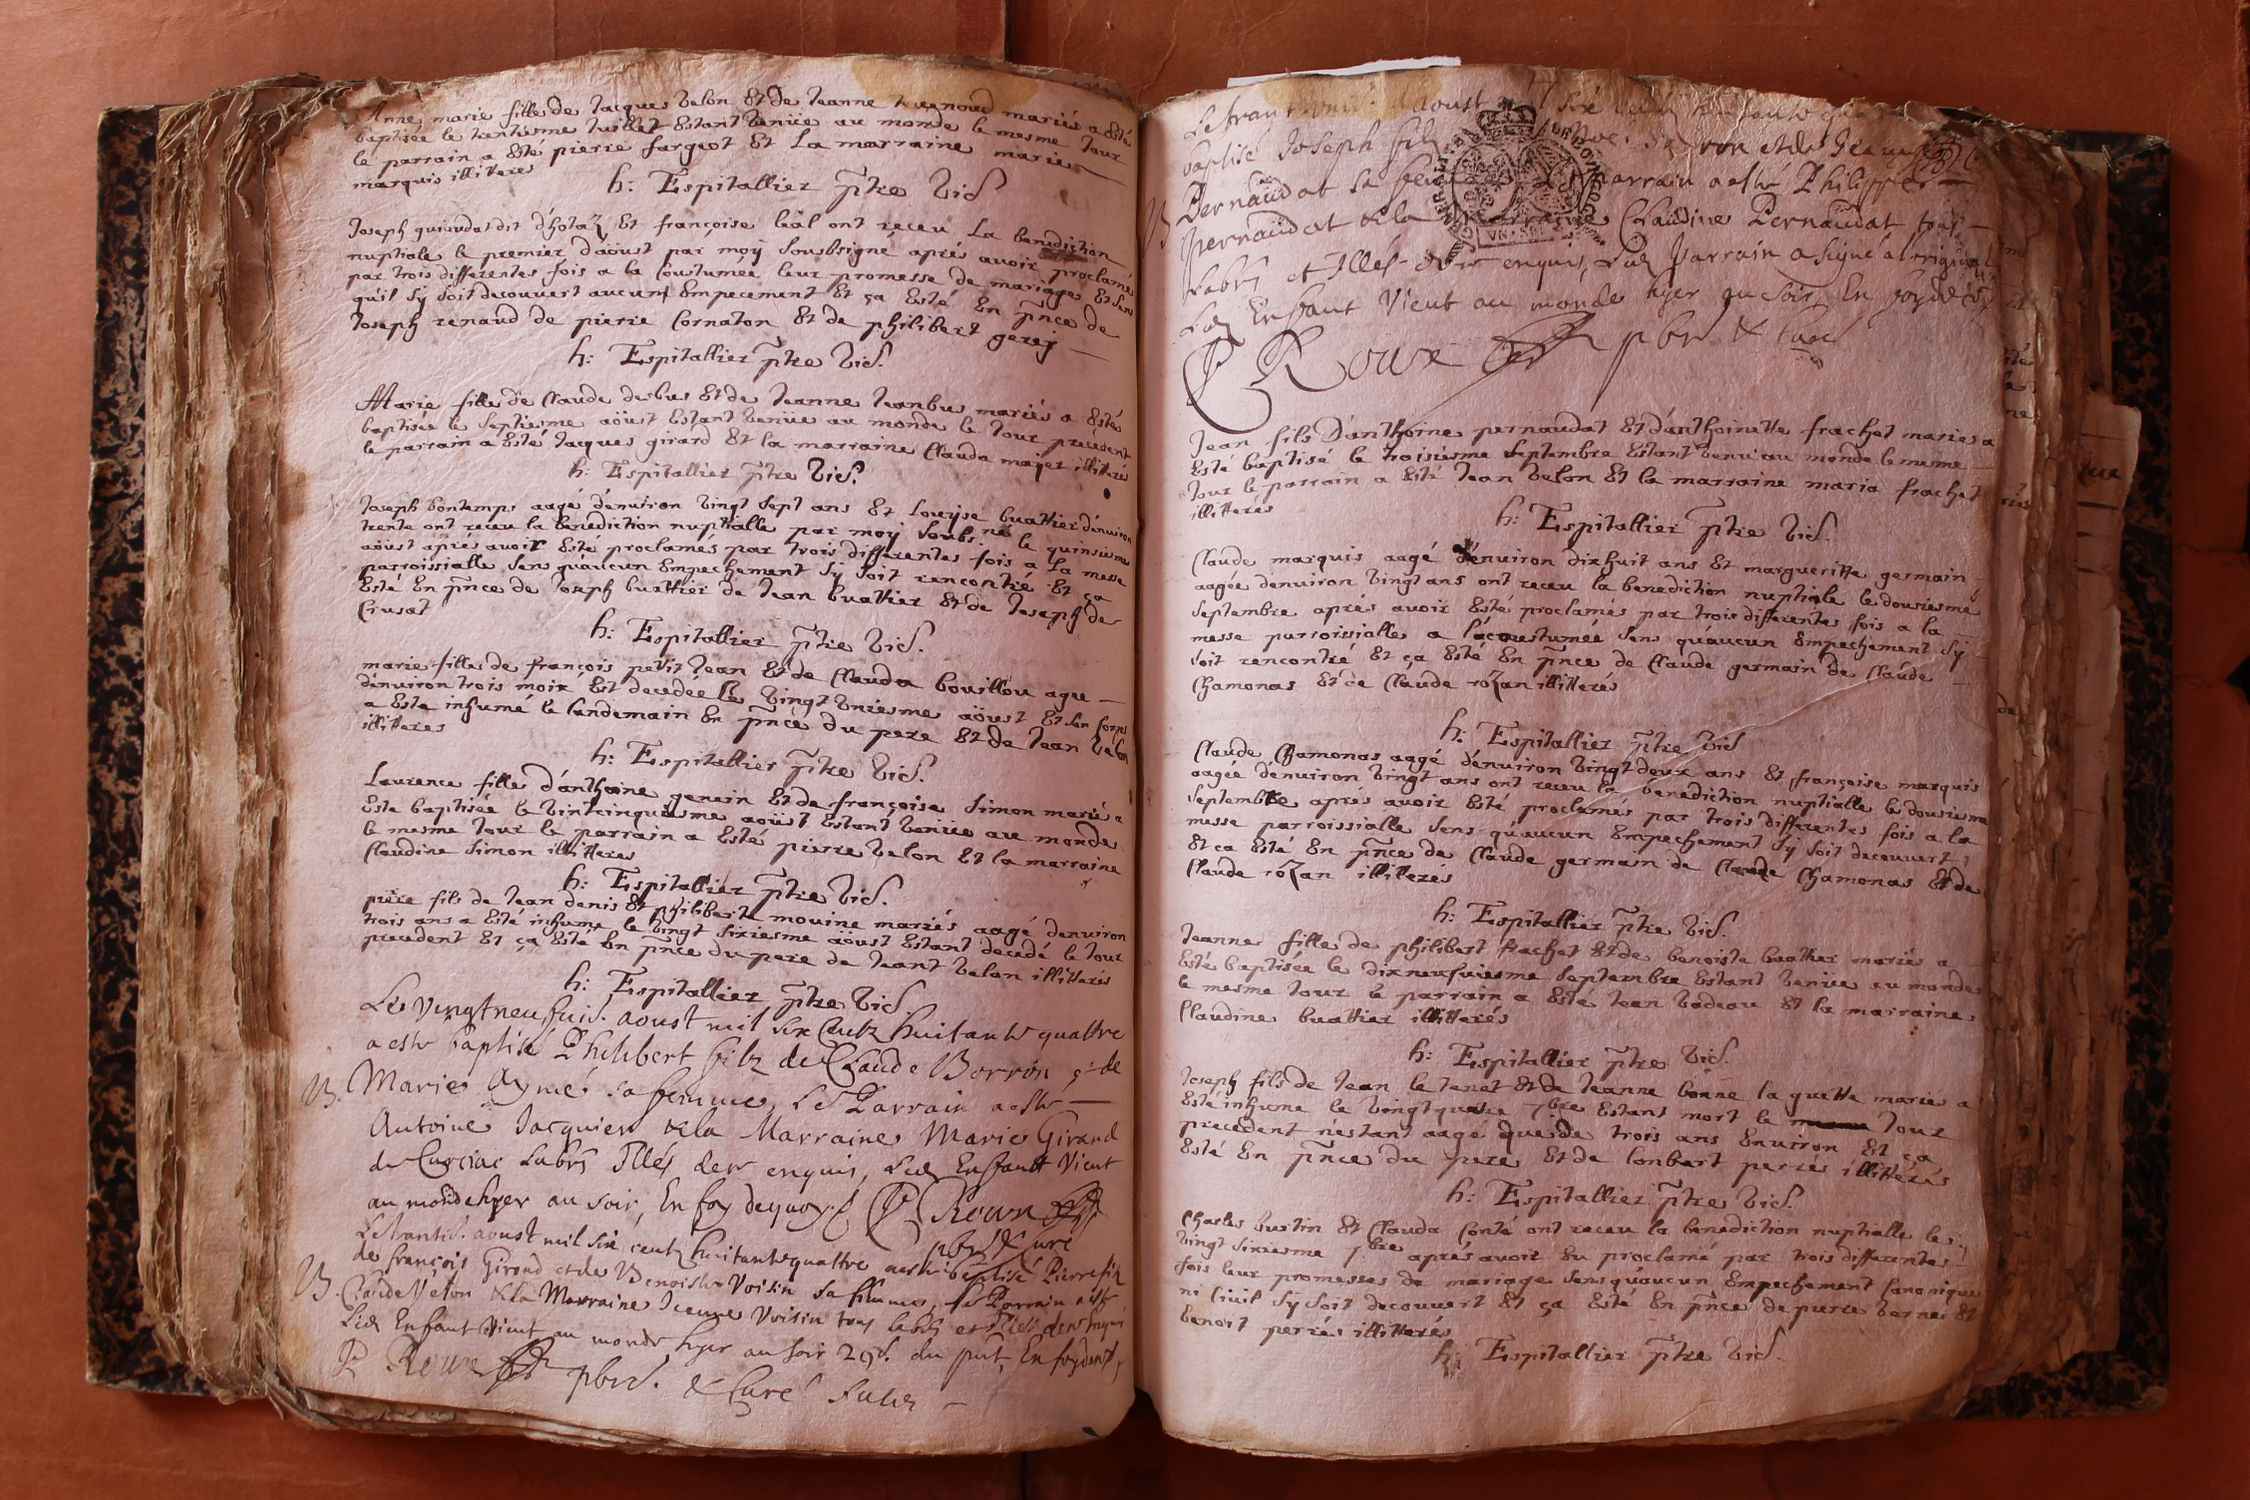 Anne marie fille de Jacques velon Et de Jeanne mariés a Esté
baptisée le trentiesme Juillet Estant venüe au monde le mesme Jour
le parrain a Esté pierre fargeot Et La marraine marie
marquis illiteres
h: Espitallier p̃tre vic.
Joseph dit d'hotaz Et françoise leal ont receu La benediction
nuptiale le premier d'aoust par moy Soubsigné aprés avoir proclamé
par trois differentes fois a la Coustumée leur promesse de mariage Et sens
qu'il sÿ soit decouvert aucunt Empecement Et ça Esté En p̃nce de
Joseph renaud de pierre Cornaton Et de philibert gerej
h: Espitallier p̃tre vic.
Marie fille de Claude debus Et de Jeanne Jeanbu mariés a Esté
baptisée le septiesme aoüst Estant venüe au monde le Jour precedent
le parrain a Esté Jacques girard Et la marraine Clauda majer illiterés
h: Espitallier p̃tre vic.
Joseph bontemps aagé d'environ vingt sept ans Et Louyse buattier d'environ
trente ont receu la benediction nuptialle par moÿ Soubs. né le quinsiesme
aoüst aprés avoir Esté proclamés par trois differentes fois a la messe
parroissialle sens qu'aucun Empechement sÿ soit rencontré Et ça
Esté En p̃nce de Joseph buattier de Jean buattier Et de Joseph de
Crusat
h: Espitallier p̃tre vic.
marie fille de françois petit Jean Et de Clauda bouillou agee
d'environ trois moix Est decedée le vingt vniesme aöust Et son corps
a Esté inhumé le landemain En p̃nce du pere Et de Jean velon
illitteres
h: Espitallier p̃tre vic.
Laurence fille d'anthoine genein Et de françoise Simon mariés a
Este baptisée le vintcinquiesme aoüst Estant venüe au monde
le mesme Jour le parrain a Esté pierre velon Et la marraine
Claudine Simon illitteres
h: Espitallier p̃tre vic.
piere fils de Jean denis Et philiberte mouine mariés aagé d'environ
trois ans a Esté inhume le vingt sixiesme aoust Estant decedé le Jour
precedent Et ça Esté En p̃nce du pere de Jeant velon illitterés
h: Espitallier p̃tre vic.
Le vingt neufuie. aoust mil six Centz huitante quattre
a este baptisé Philibert filz de Claude Borron et de
B. Marie Aymé sa femme, Le Parrain a este
Antoine Jacquier & la Marraine Marie Giraud
de Curciac Labrs Illés der enquis, Led Enfant Vient
au monde hyer au soir, En foy dequoy P Roux
pbre & curé
Le trante. aoust mil six centz huitante quattre a este baptisé Pierre filz
de françois Giroud et de Benoiste Voisin sa femme, Le Parrain a este
B. Claude Velon & la Marraine Jeanne Voisin tous labrs et Illés der enquis
Led Enfant Vient au monde hyer au soir 29e. du put, En foy dequoy
P Roux pbre. & Curé
Le trant aoust
baptisé Joseph filz et de Jeanne
Pernaudat sa femme Parrain a esté Philippe
B Pernaudat & la Marraine Claudine Pernaudat tous
Labrs et Illés der enquis, Led Parrain a signé a l'original
Led Enfant Vient au monde hyer au soir, En foy de
P Roux pbre & Curé
Jean fils D'anthoine pernaudat Et d'anthoinette frachet mariés a
Esté baptisé le troisiesme septembre Estant venu au monde le mesme
Jour le parrain a Esté Jean velon Et la marraine maria frachet
illitterés
h: Espitallier p̃tre vic.
Claude marquis aagé d'environ dixhuit ans Et margueritte germain
aagée d'environ vingt ans ont receu la benediction nuptiale le dousiesme
septembre aprés avoir Esté proclamés par trois differentes fois a la
messe parroissialle a l'acoustumée sens qu'aucun Empechement sÿ
soit rencontré Et ça Esté En p̃nce de Claude germain de Claude
Chamonas Et de Claude rozan illitterés
h: Espitallier p̃tre vic
Claude Chamonas aagé d'environ vingt deux ans Et françoise marquis
aagée d'environ vingt ans ont receu la benediction nuptialle le dousiesme
septembre aprés avoir Esté proclamés par trois differentes fois a la
messe parroissialle sens qu'aucun Empechement sÿ soit decouvert
Et ca Esté En p̃nce de Claude germain de Claude Chamonas Et de
Claude rozan illiteres
h: Espitallier p̃tre vic.
Jeanne fille de philibert frachet Et de benoiste buattier mariés a
Esté baptisée le dixneufuiesme septembre Estant venüe au monde
le mesme Jour le parrain a Esté Jean bodeau Et la marraine
Claudine buattier illitterés
h: Espitallier p̃tre vic.
Joseph fils de Jean le tenet Et de Jeanne bonne la guette mariés a
Esté inhumé le vingt quatre 7bre Estant mort le Jour
precedent n'estant aagé que de trois ans Environ Et ça
Esté En p̃nce du pere Et de lonbart perrés illitterés
h: Espitallier p̃tre vic.
Charles bustin Et Clauda Conté ont receu la benediction nuptialle le
vingt sixiesme 7bre aprés avoir Eu proclamé par trois differentes
fois leur promesses de mariage sens qu'aucun Empechement Canonique
ni Civil sÿ soit decouvert Et ça Esté En p̃nce de pierre berne Et
benoit perrés illitterés
h: Espitallier p̃tre vic.